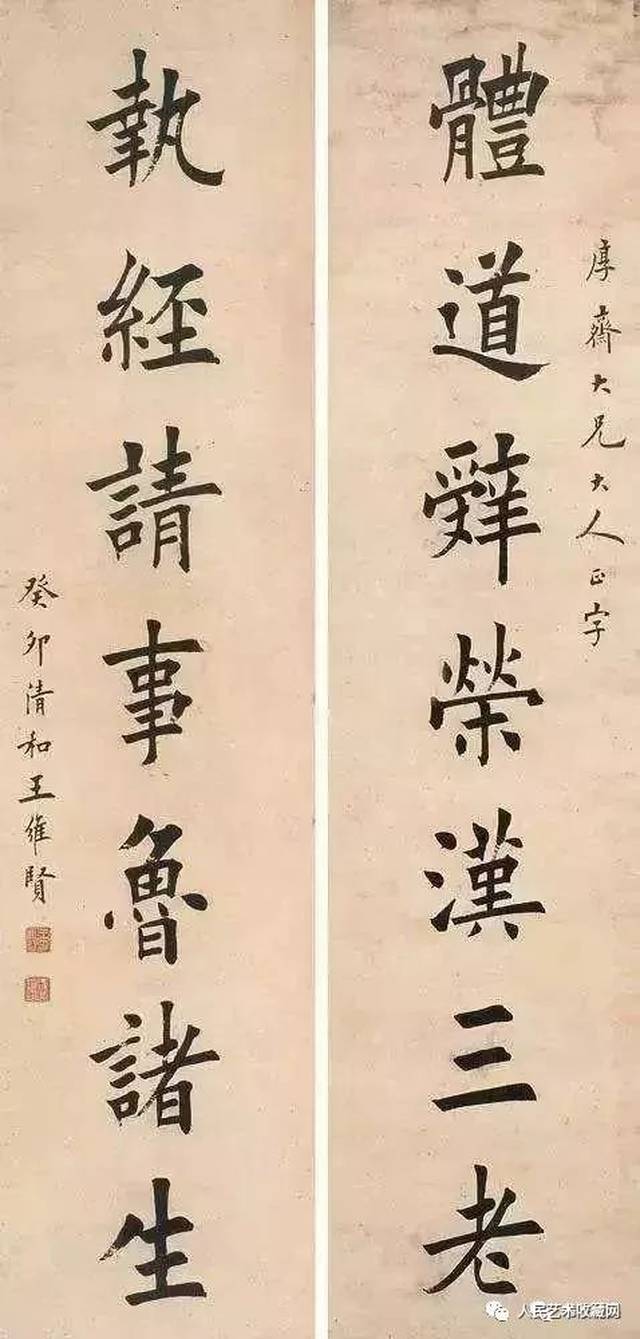 厚齋大兄大人正字
體道辤榮漢三老
執經請事魯諸生
癸卯清和王維賢
人民艺术收藏网